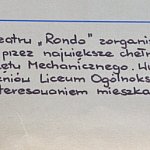 eatru „Rondo” zorgani
przez największe chełm
ętu Mechanicznego. W
zniów Liceum Ogólnoks
teresowaniem mieszka